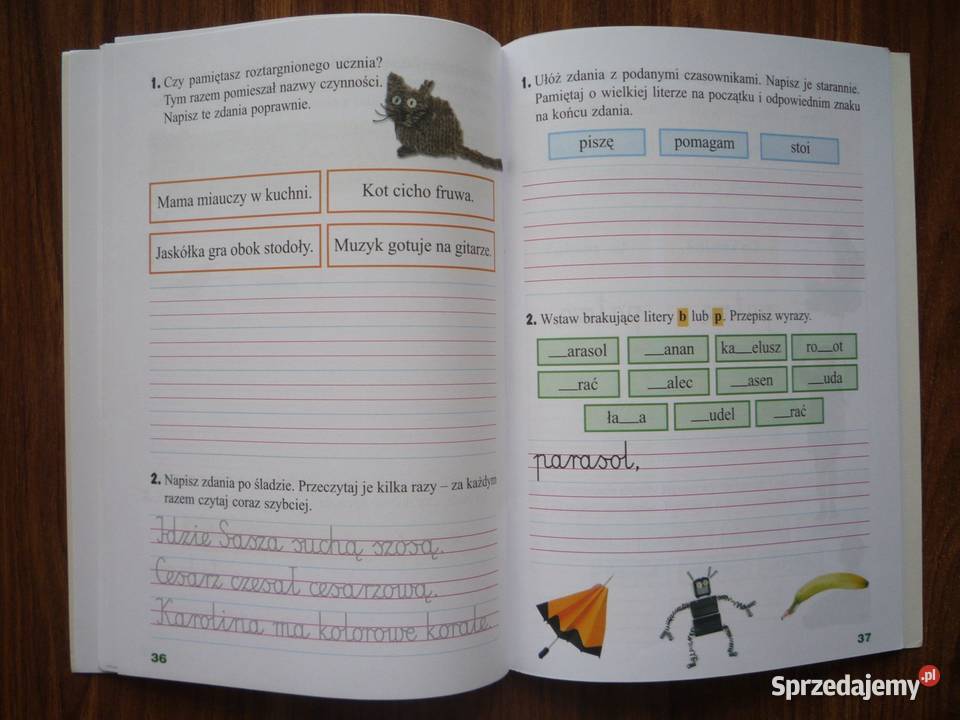 1. Czy pamiętasz roztargnionego ucznia?
Tym razem pomieszał nazwy czynności.
Napisz te zdania poprawnie.
Mama miauczy w kuchni.
Kot cicho fruwa.
Jaskółka gra obok stodoły.
Muzyk gotuje na gitarze.
2. Napisz zdania po śladzie. Przeczytaj je kilka razy – za każdym
razem czytaj coraz szybciej.
Idzie Sasza suchą szosą.
Cesarz czesał cesarzową.
Karolina ma kolorowe korale.
36
1. Ułóż zdania z podanymi czasownikami. Napisz je starannie.
Pamiętaj o wielkiej literze na początku i odpowiednim znaku
na końcu zdania.
piszę
pomagam
stoi
2. Wstaw brakujące litery b lub p. Przepisz wyrazy.
__arasol
__anan
ka__elusz
ro__ot
__rać
__alec
__asen
__uda
ła__a
__udel
__rać
parasol,
37
Sprzedajemy.pl